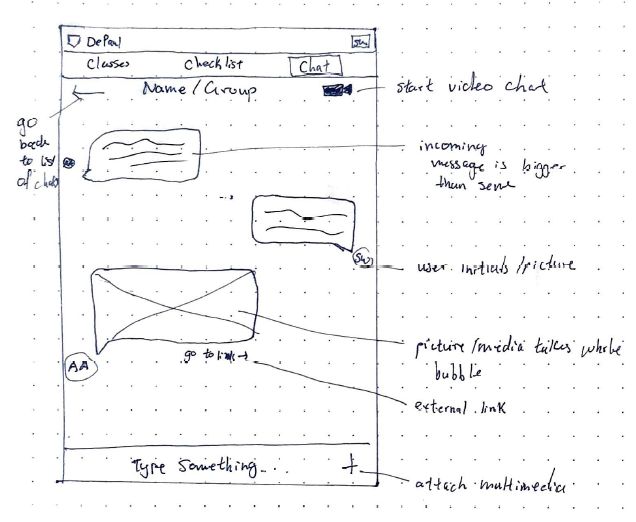 DePaul
SW
Classes
Checklist
Chat
Name/Group
start video chat
go
back
to list
of chats
incoming
message is bigger
than send
SW
user initials/picture
picture/media takes whole
bubble
AA
go to link →
external link
Type Something...
+
attach multimedia